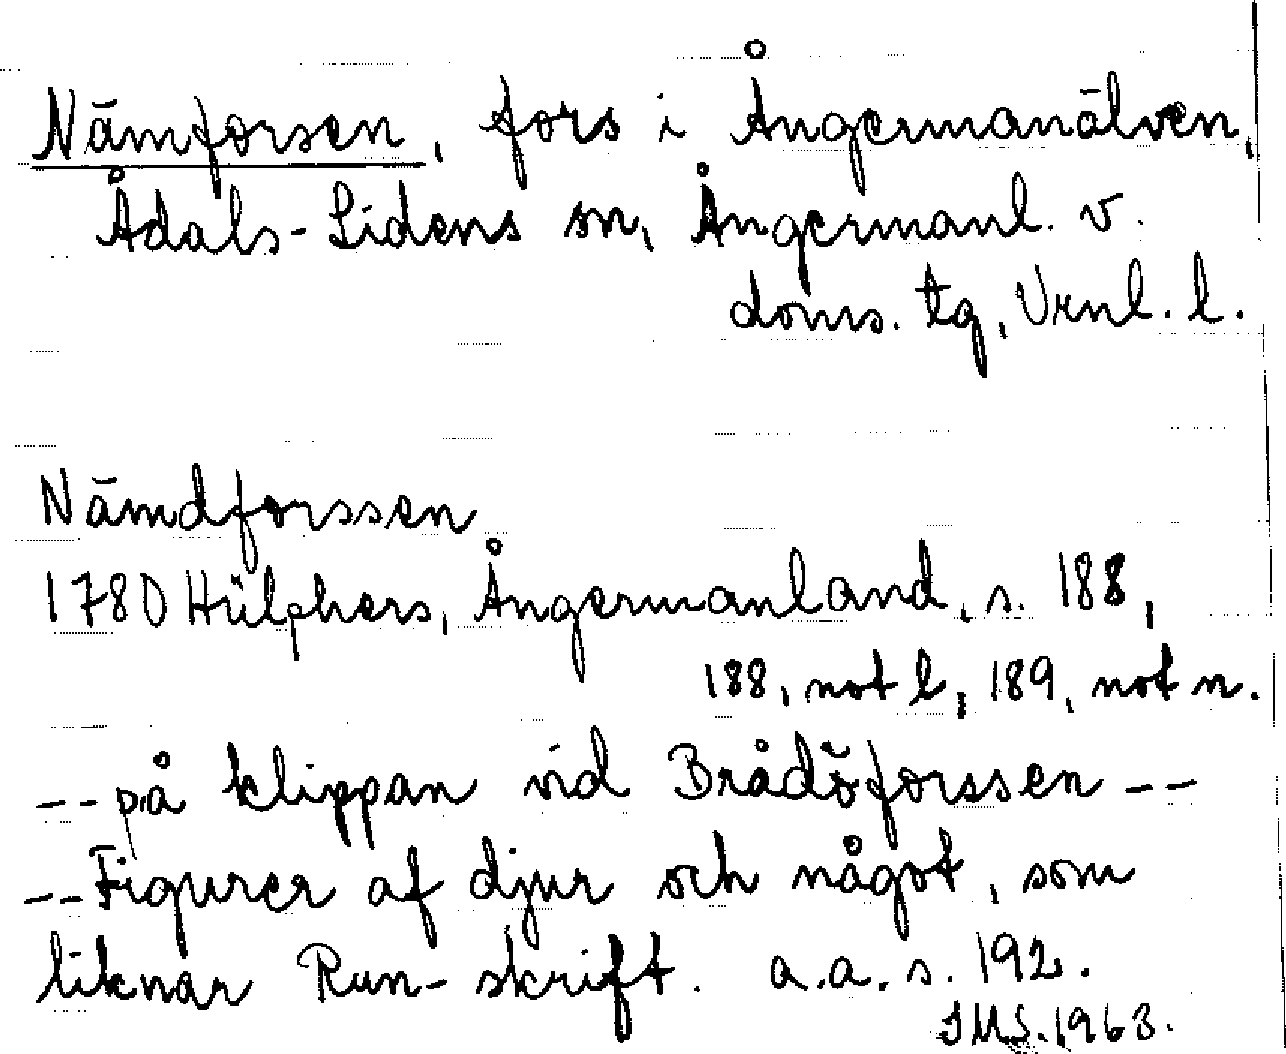 Nämforsen, fors i Ångermanälven,
Ådals-Lidens sn, Ångermanl. v.
doms. tg, Vrnl. l.
Nämdforssen
1780 Hülphers, Ångermanland, s. 188,
188, not l, 189, not n.
-- på klippan vid Brådöforssen --
-- Figurer af djur och något, som
liknar Run-skrift. a.a. s. 192.
IMS. 1963.